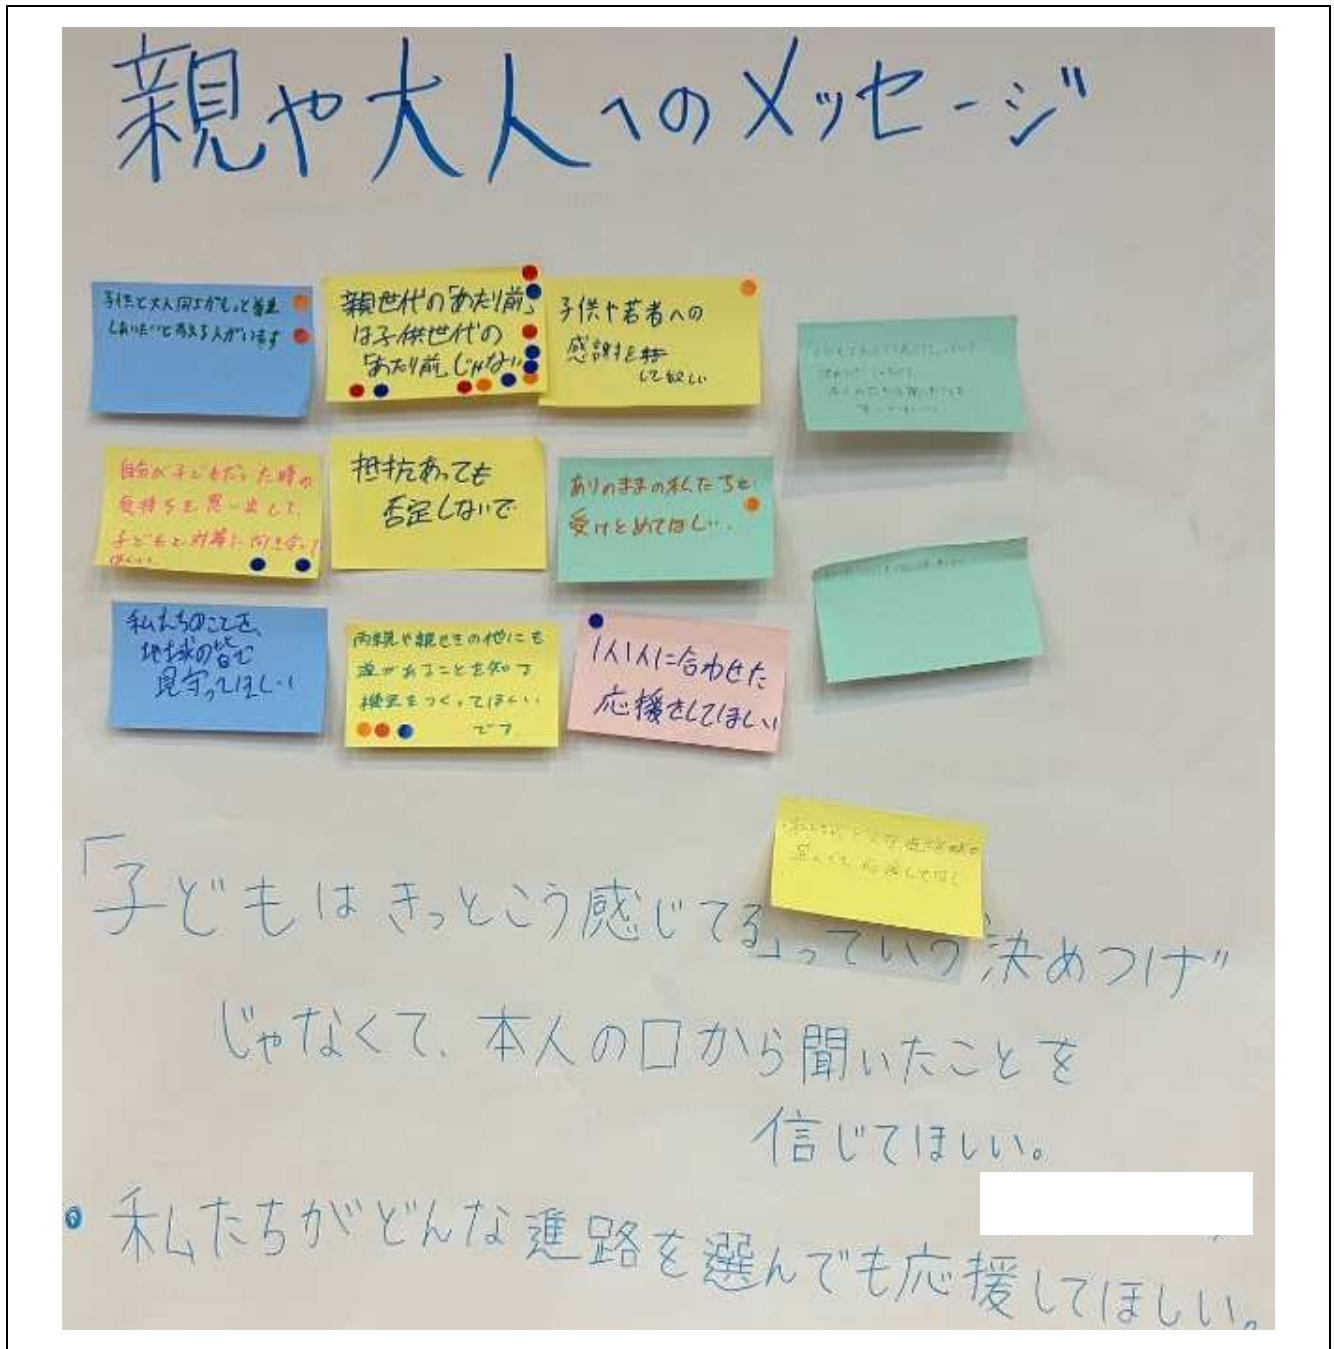 親や大人へのメッセージ
子供と大人同士がもっと尊重
しあいたいと考える人がいます
親世代の「あたり前」
は子供世代の
「あたり前」じゃない
子供や若者への
感謝を
して欲しい
自分が子どもだった時の
気持ちを思い出して、
子どもと対等に向き合って
ほしい。
抵抗あっても
否定しないで
ありのままの私たちを
受けとめてほしい。
私たちのことを、
地球の皆で
見守ってほしい
両親や親せきの他にも
道があることを知る
機会をつくってほしい
です。
1人1人に合わせた
応援をしてほしい
私たちがどんな進路を
選んでも応援してほし
「子どもはきっとこう感じてる」っていう決めつけ
じゃなくて、本人の口から聞いたことを
信じてほしい。
・私たちがどんな進路を選んでも応援してほしい。